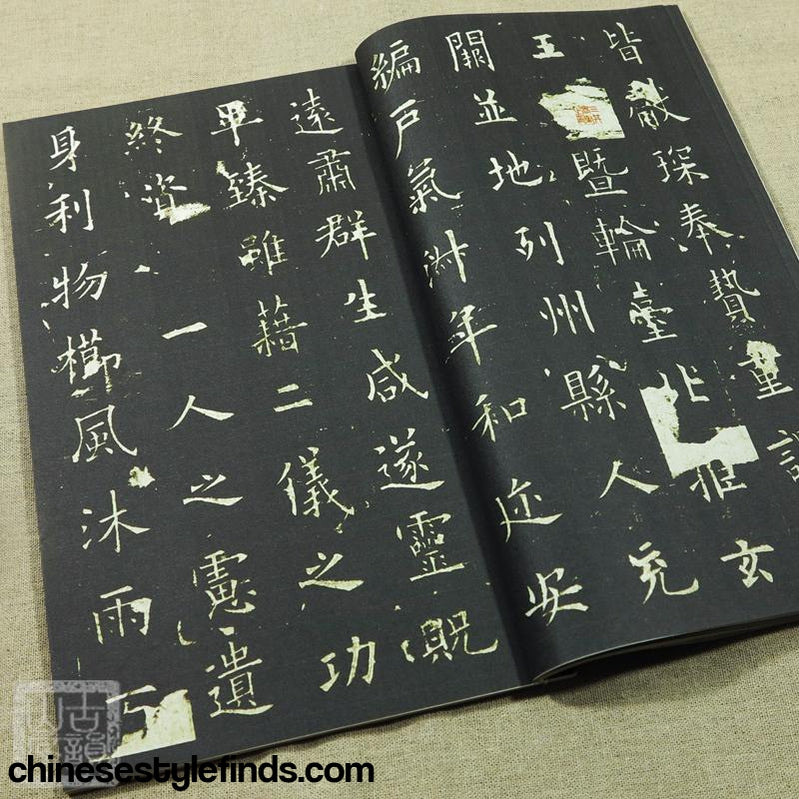 皆獻琛奉贄重
王暨輪臺北拒玄
闕並地列州縣人充
編戶氣淑年和迩安
遠肅群生咸遂靈貺
畢臻雖藉二儀之功
終資一人之慮遺
身利物櫛風沐雨百
古韻
chinesestylefinds.com